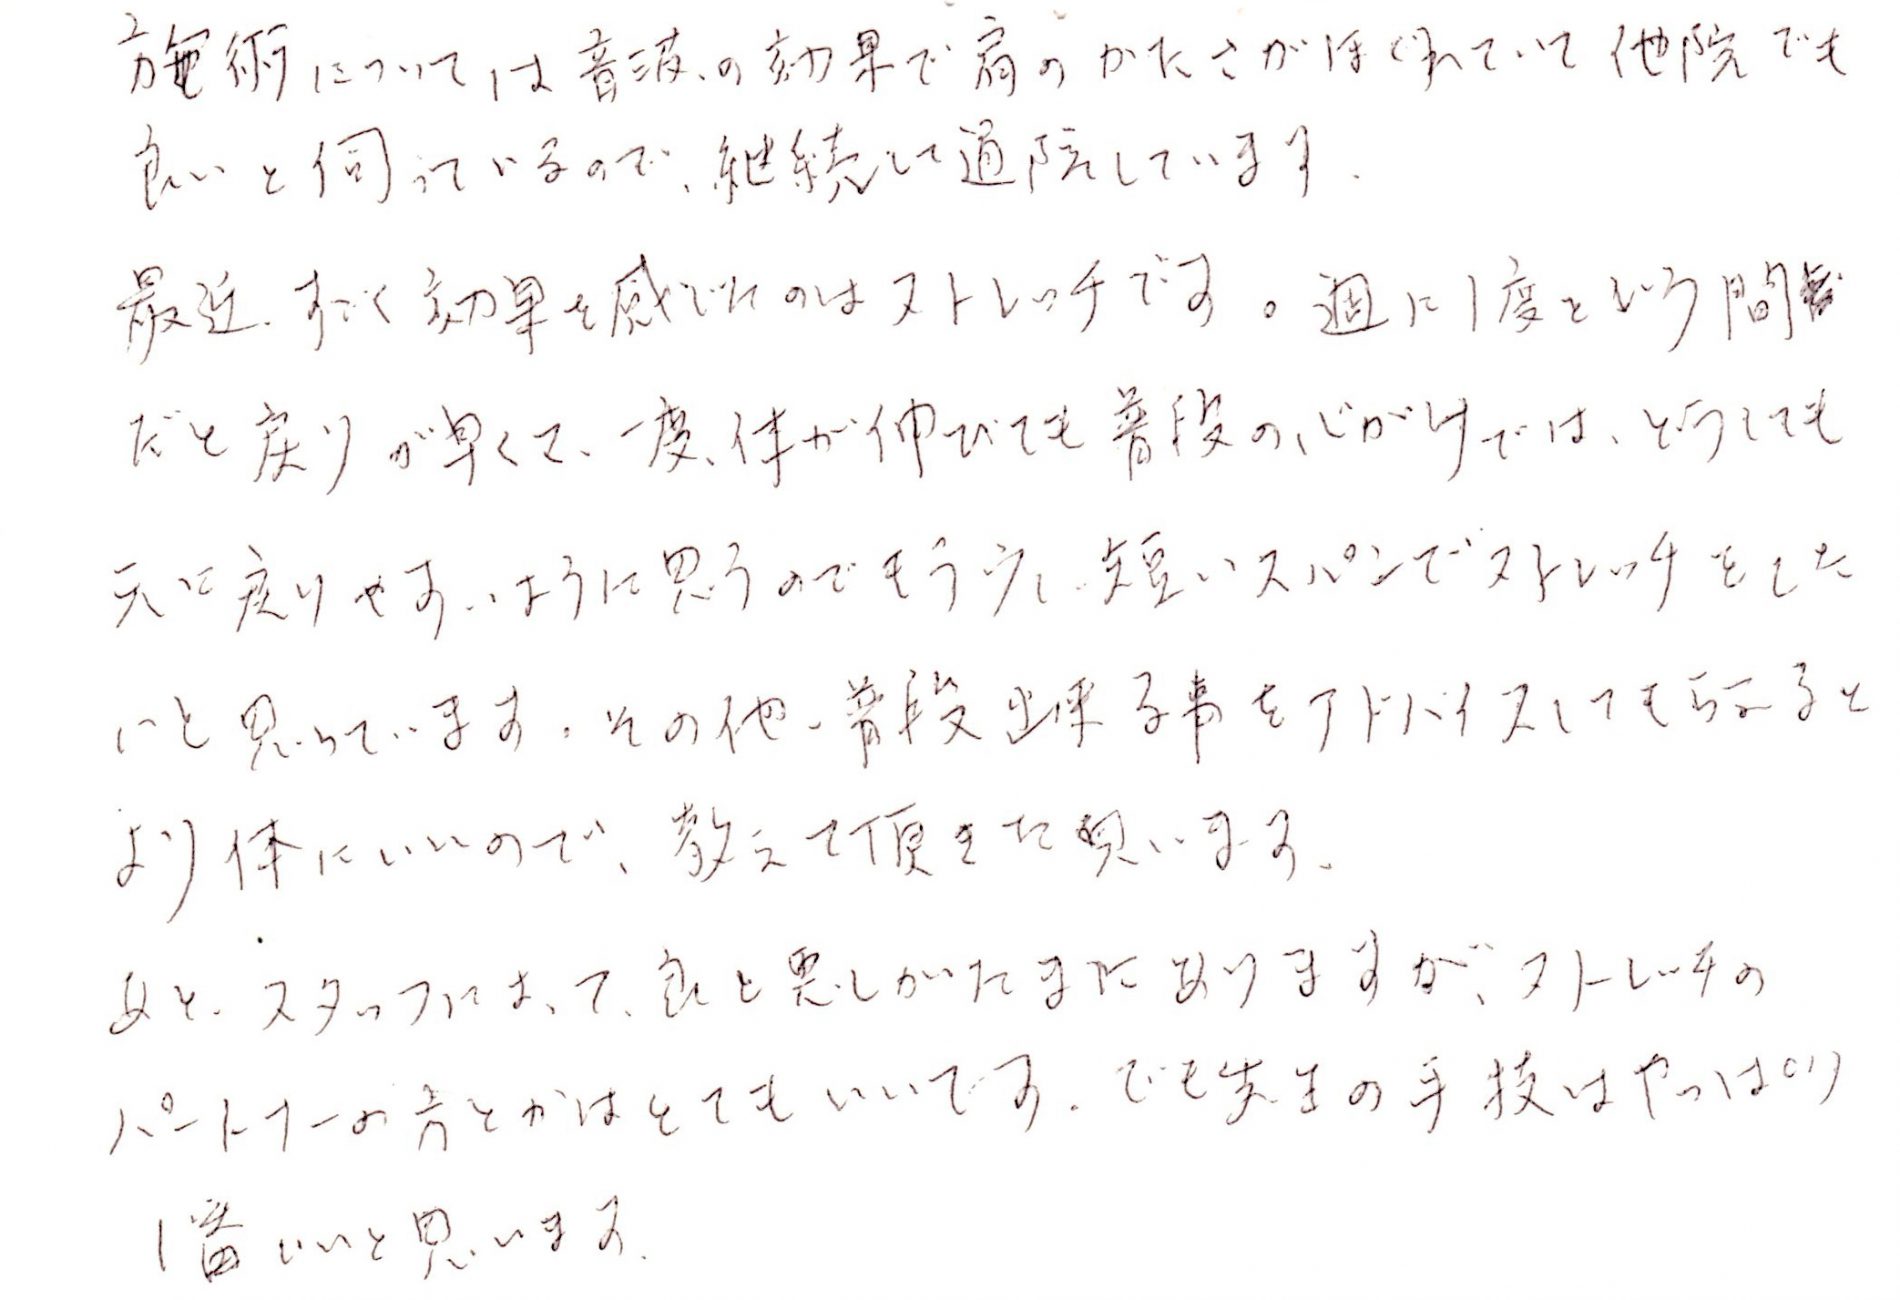 施術については音波の効果で肩のかたさがほぐれていて他院でも
良いと伺っているので、継続して通院しています.
最近、すごく効果を感じたのはストレッチです。週に1度という間
だと戻りが早くて、一度、体が伸びても普段の心がけでは、どうしても
元に戻りやすいように思うのでもう少し短いスパンでストレッチをした
いと思っています。その他、普段出来る事をアドバイスしてもらえると
より体にいいので、教えて頂きた思います、
あと、スタッフによって、良し悪しがたまにありますが、ストレッチの
パートナーの方とかはとてもいいです。でも先生の手技はやっぱり
1番いいと思います.